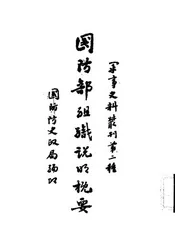 軍事史料叢刊第二種
國防部組織說明概要
國防部史政局編印